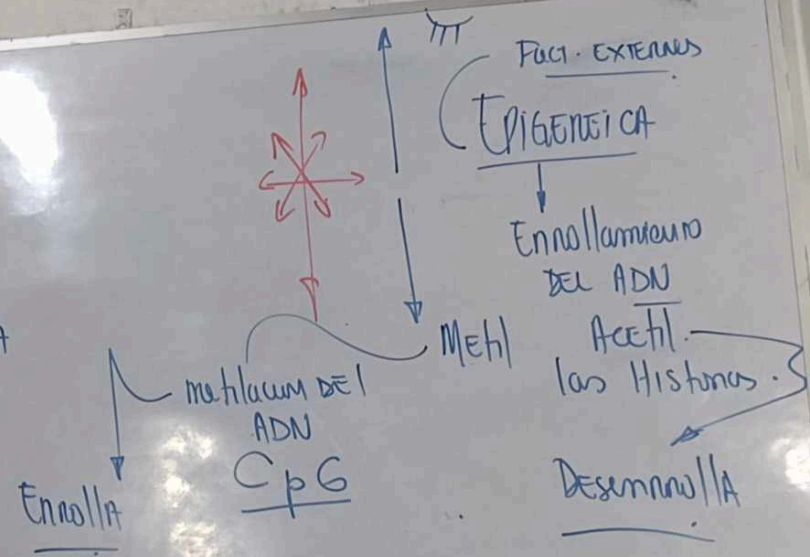 FACT. EXTERNOS
EPIGENETICA
Enrollamiento
DEL ADN
Metil
Acetil.
las Histonas.
metilacion DEl
ADN
CpG
Enrolla
Desenrrolla